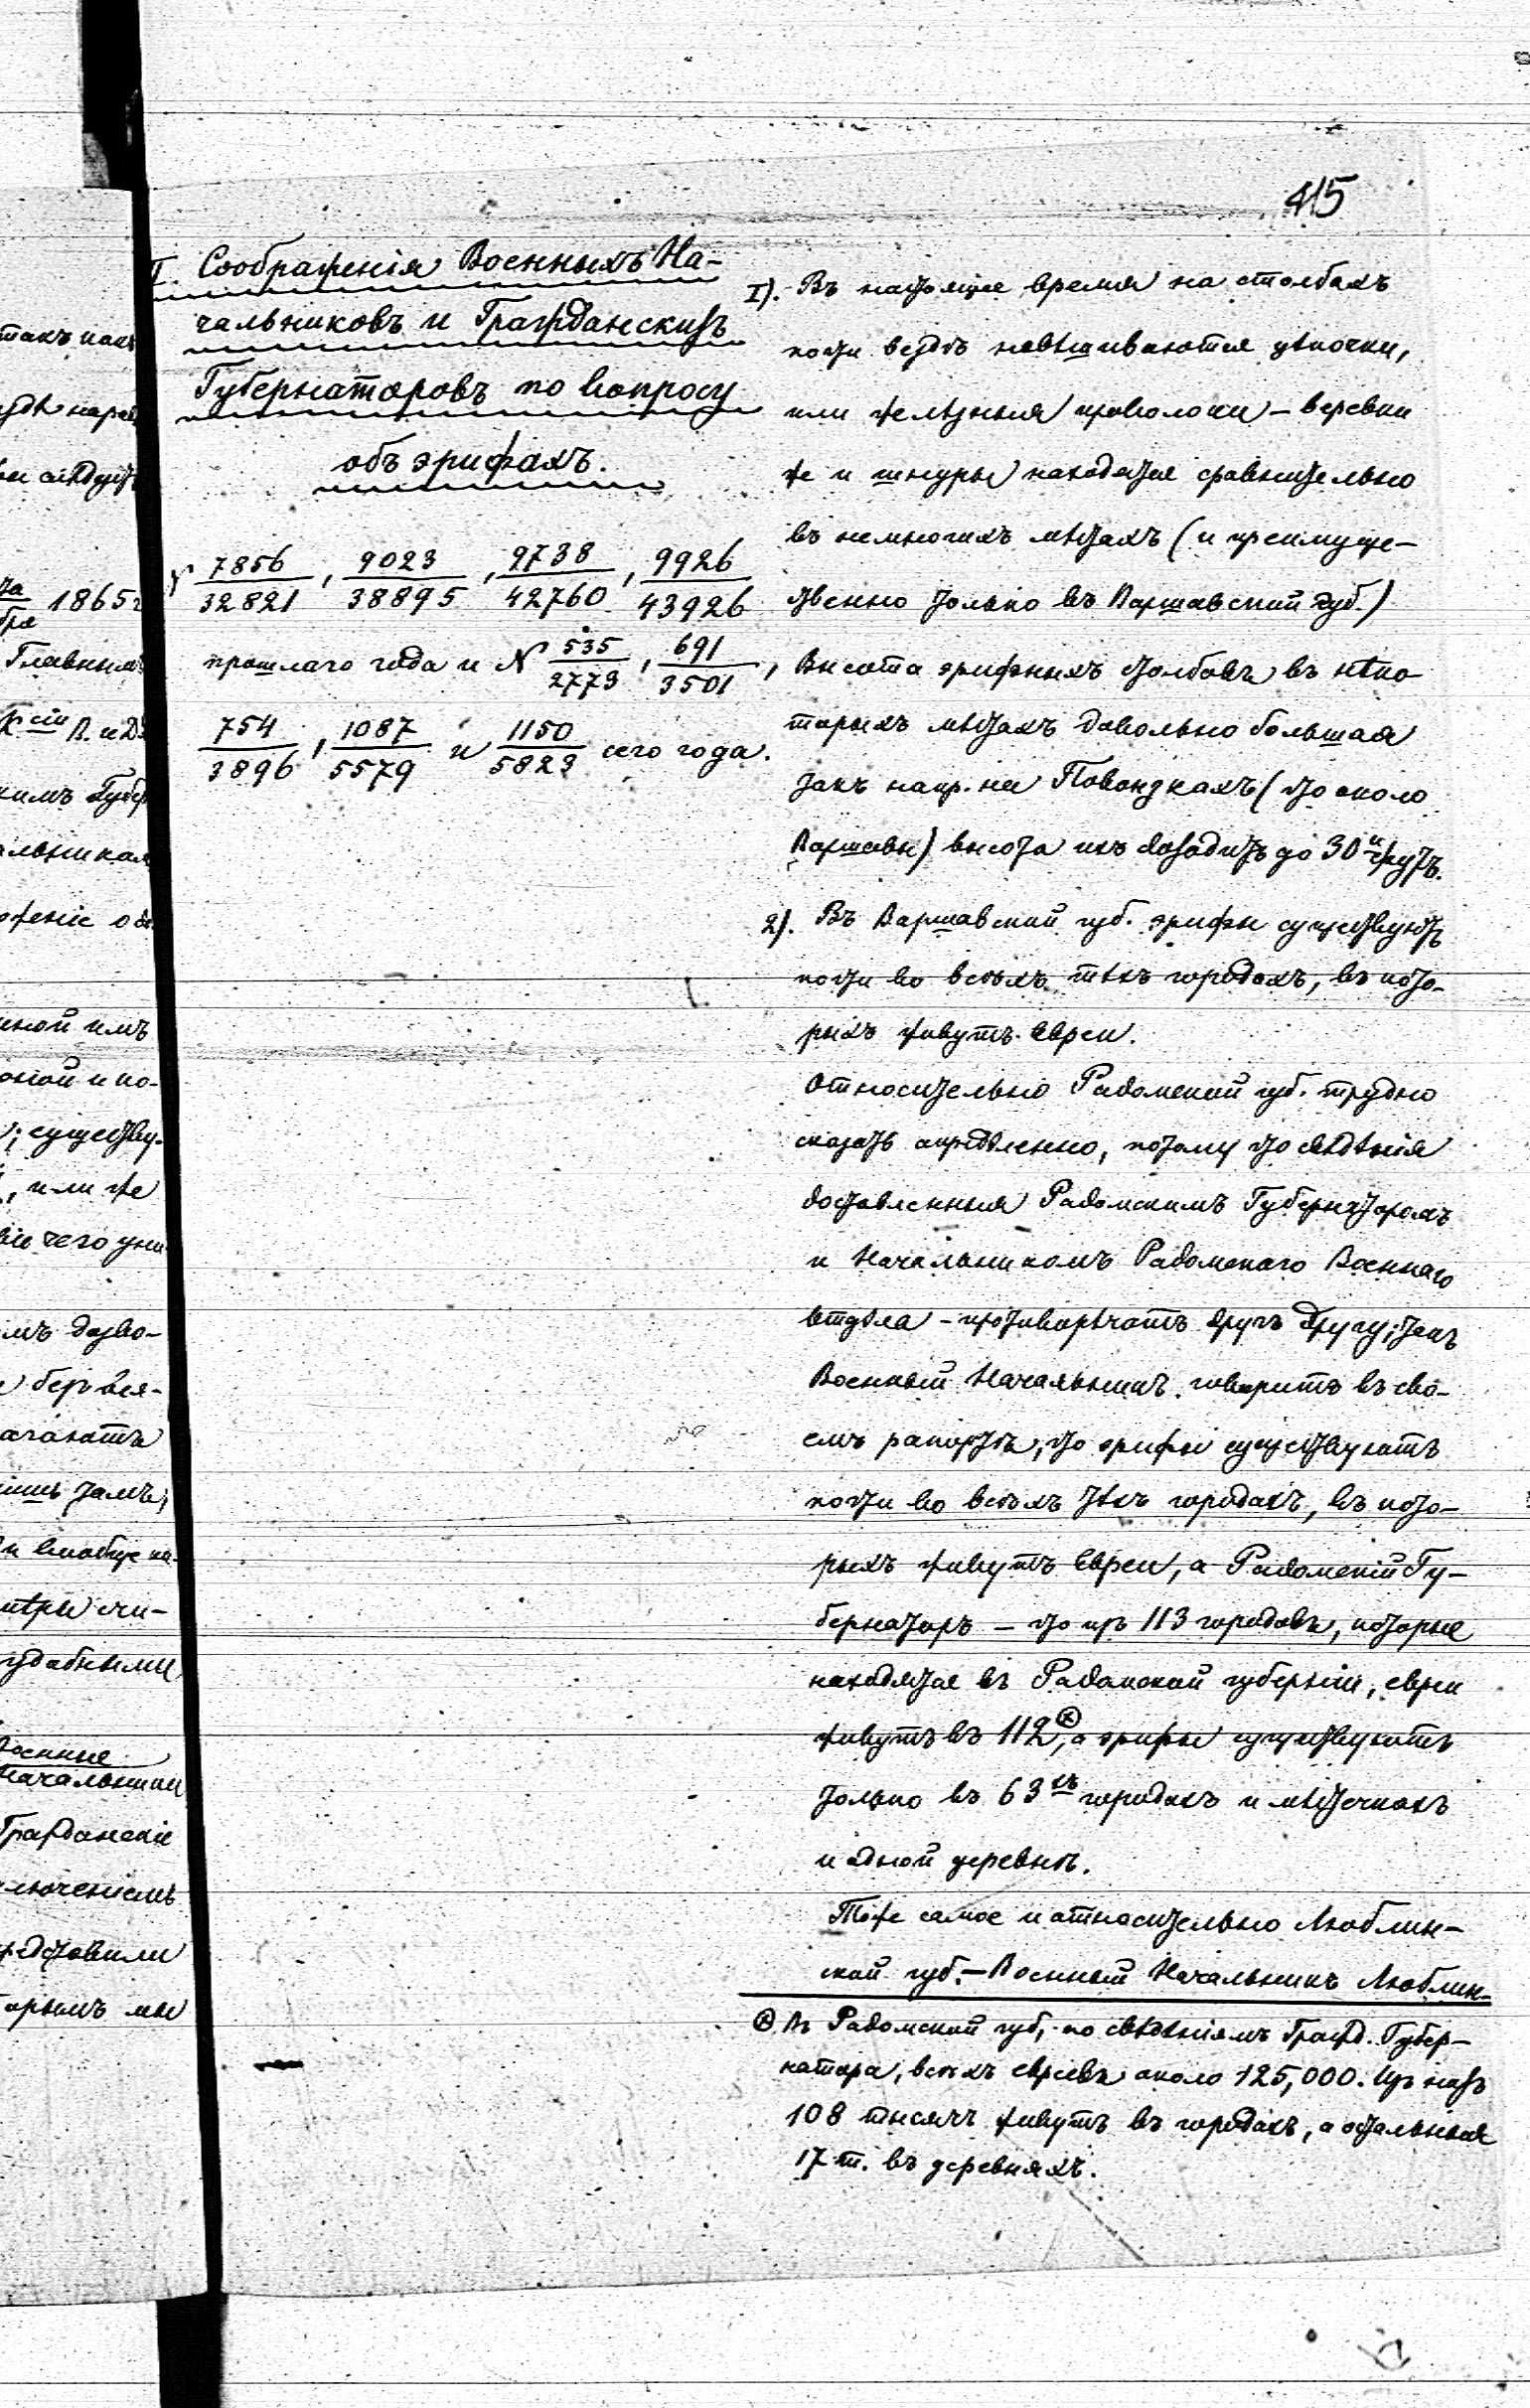 415
I. Соображенія Военныхъ На-
чальниковъ и Гражданскихъ
Губернаторовъ по вопросу
объ эрифахъ.
N 7856/32821, 9023/38895, 9738/42760, 9926/43926
прошлаго года и N 535/2773, 691/3501,
754/3896, 1087/5579 и 1150/5823 сего года.
I). Въ настоящее время на столбахъ
почти вездѣ навѣшиваются цѣпочки,
или желѣзныя проволоки – веревки
же и шнуры находятся сравнительно
въ немногихъ мѣстахъ (и преимуще-
ственно только въ Варшавской губ.)
Высота эрифныхъ столбовъ въ нѣко-
торыхъ мѣстахъ довольно большая
такъ напр. на Повонзкахъ (что около
Варшавы) высота ихъ доходитъ до 30и футъ.
2). Въ Варшавской губ. эрифы существуютъ
почти во всѣхъ тѣхъ городахъ, въ кото-
рыхъ живутъ евреи.
Относительно Радомской губ. трудно
сказать опредѣленно, потому что свѣдѣнія
доставленныя Радомскимъ Губернаторомъ
и Начальникомъ Радомскаго Военнаго
отдѣла – противорѣчатъ другъ другу; такъ
Военный Начальникъ говоритъ въ сво-
емъ рапортѣ, что эрифы существуютъ
почти во всѣхъ тѣхъ городахъ, въ кото-
рыхъ живутъ евреи, а Радомскій Гу-
бернаторъ – что изъ 113 городовъ, которые
находятся въ Радомской губерніи, евреи
живутъ въ 112 ⊗, а эрифы существуютъ
только въ 63хъ городахъ и мѣстечкахъ
и одной деревнѣ.
Тоже самое и относительно Люблин-
ской губ. – Военный Начальникъ Люблин-
⊗ Въ Радомской губ., по свѣдѣніямъ Гражд. Губер-
натора, всѣхъ евреевъ около 125,000. Изъ нихъ
108 тысячъ живутъ въ городахъ, а остальныя
17 т. въ деревняхъ.